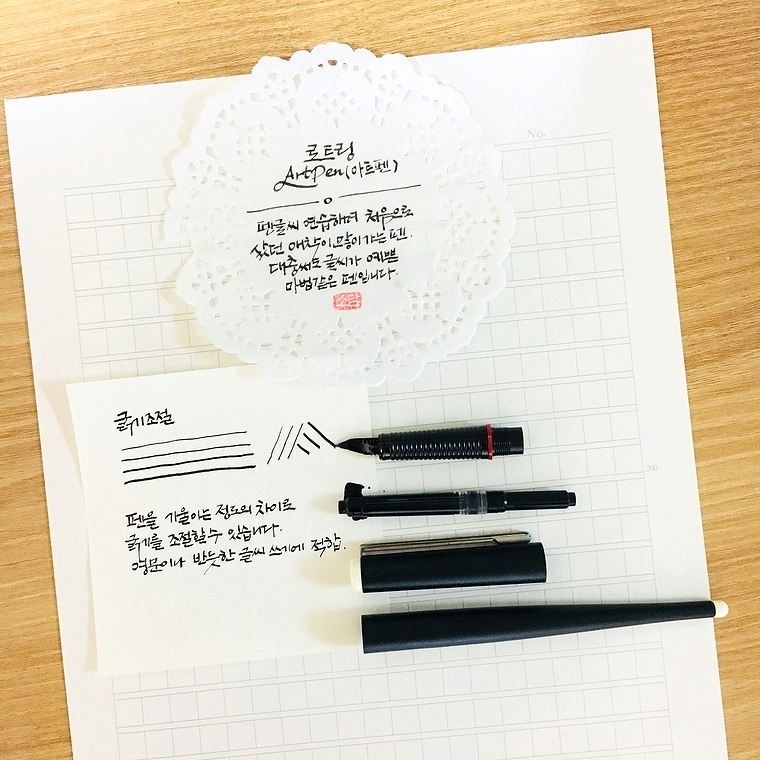 No.
로트링
ArtPen(아트펜)
펜글씨 연습하며 처음으로
샀던 애착이 많이 가는 펜.
대충써도 글씨가 예쁜
마법같은 펜입니다.
소담
200
굵기조절
펜을 기울이는 정도의 차이로
굵기를 조절할 수 있습니다.
영문이나 반듯한 글씨 쓰기에 적합.